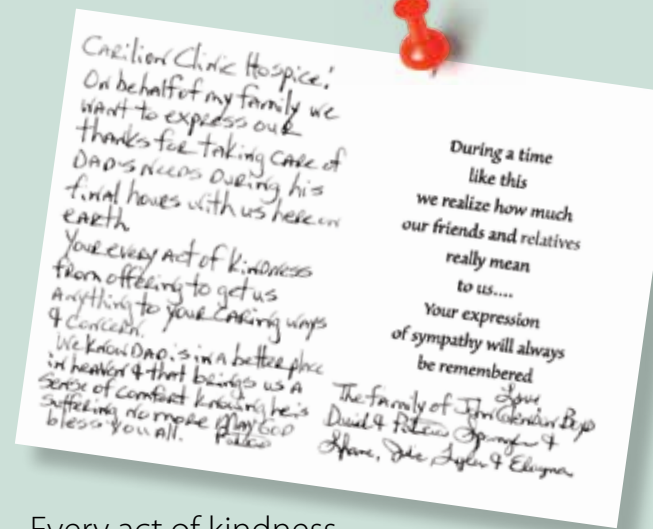 Carilion Clinic Hospice!
On behalf of my family we
want to express our
thanks for taking care of
Dad's needs during his
final hours with us here on
earth.
Your every act of kindness
from offering to get us
anything to your caring ways
& concern.
We know Dad is in a better place
in heaven & that brings us a
sense of comfort knowing he is
suffering no more May God
bless you all.
During a time
like this
we realize how much
our friends and relatives
really mean
to us....
Your expression
of sympathy will always
be remembered
Love
The family of Jim
David & &
Shane, & 
Every act of kindness